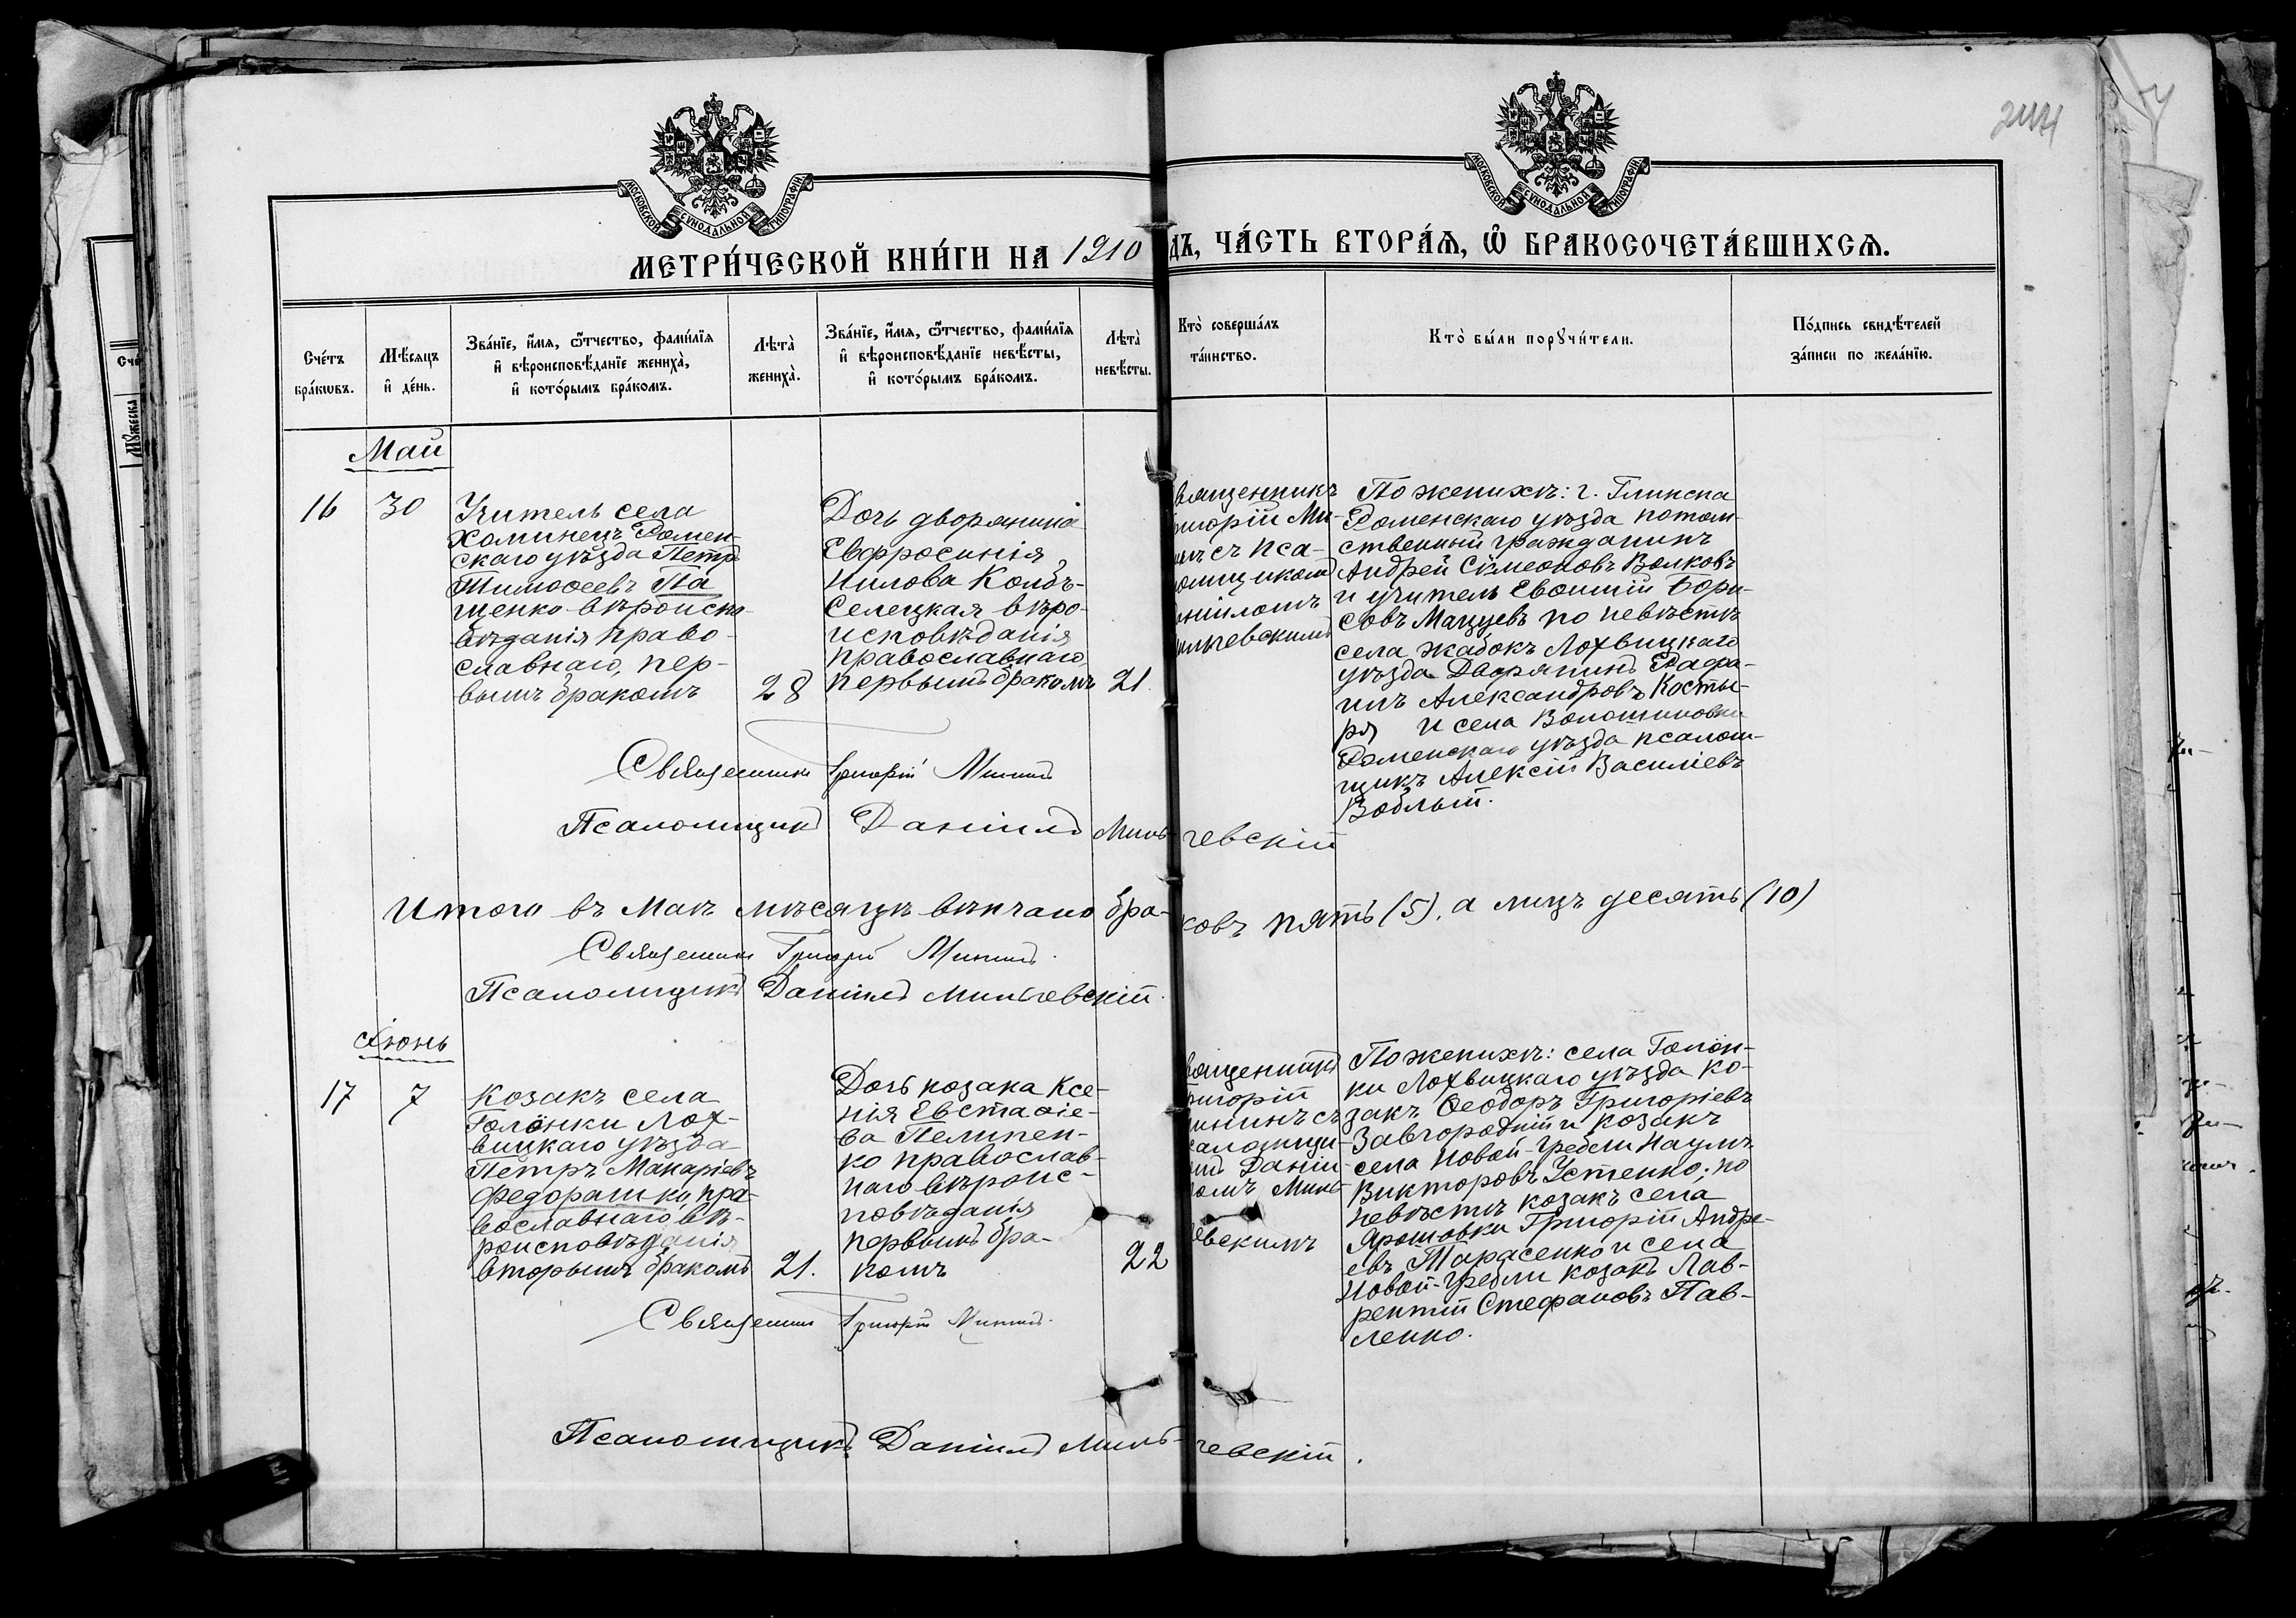 244
МОСКОВСКОЙ СѴНОДАЛЬНОЙ ТИПОГРАФІИ
МОСКОВСКОЙ СѴНОДАЛЬНОЙ ТИПОГРАФІИ
МЕТРИ́ЧЕСКОЙ КНИ́ГИ НА 1910
ДЪ, ЧА́СТЬ ВТОРА́Я, Ѡ БРАКОСОЧЕТА́ВШИХСЯ.
Сче́тъ
бра́кѡвъ.
Мѣ́сяцъ
и҆ де́нь.
Зва́нїе, и҆́мя, ѻ҆́тчество, фами́лїя
и҆ вѣроисповѣ́данїе жениха̀,
и҆ кото́рымъ бра́комъ.
Лѣта̀
жениха̀.
Зва́нїе, и҆́мя, ѻ҆́тчество, фами́лїя
и҆ вѣроисповѣ́данїе невѣ́сты,
и҆ кото́рымъ бра́комъ.
Лѣта̀
невѣ́сты.
Кто̀ соверша́лъ
та́инство.
Кто̀ бы́ли порꙋчи́тели.
По́дпись свидѣ́телей
за́писи по жела́нїю.
Май
16
30
Учитель села
Хоминецъ Ромен-
скаго уѣзда Петръ
Тимоѳеевъ Па
щенко вѣроиспо-
вѣданія право-
славнаго, пер-
вымъ бракомъ
28
Дочь дворянина
Евфросинія
Нилова Кольбъ-
Селецкая вѣро-
исповѣданія
православнаго,
первымъ бракомъ
21.
вященникъ
ригорій Ми-
инъ съ пса-
омщикомъ
аніиломъ
ильчевскимъ
По женихѣ: г. Глинска
Роменскаго уѣзда потом-
ственный гражданинъ
Андрей Сѵмеоновъ Волковъ
и учитель Евѳимій Бори-
совъ Мацуевъ по невѣстѣ
села Жабокъ Лохвицкаго
уѣзда Дворянинъ Рафа-
илъ Александровъ Косты-
ря и села Волошиновки
Роменскаго уѣзда псалом-
щикъ Алексій Василіевъ
Воблый.
Священникъ Григорій Мининъ
Псаломщикъ Даніилъ Миль-
чевскій
Итого въ Маѣ мѣсяцѣ вѣнчано бра-
ковъ пять (5), а лицъ десять (10)
Священникъ Григорій Мининъ.
Псаломщикъ Даніилъ Мильчевскій.
Іюнь
17
7
Козакъ села
Голёнки Лох-
вицкаго уѣзда
Петръ Макаріевъ
Федорашко, пра-
вославнаго вѣ-
роисповѣданія
вторымъ бракомъ
21.
Дочь козака Ксе-
нія Евстаѳіе-
ва Пелипен-
ко православ-
наго вѣроис-
повѣданія
первымъ бра-
комъ
22
вященникъ
ригорій
ининъ съ
саломщи-
мъ Даніи-
омъ Миль
евскимъ
По женихѣ: села Голён-
ки Лохвицкаго уѣзда ко-
закъ Ѳеодоръ Григоріевъ
Завгородній и козакъ
села Новой-Гребли Наумъ
Викторовъ Устенко; по
невѣстѣ козакъ села
Ярошовки Григорій Андре-
евъ Тарасенко и села
Новой-Гребли козакъ Лав-
рентій Стефановъ Пав-
ленко.
Священникъ Григорій Мининъ.
Псаломщикъ Даніилъ Миль-
чевскій.